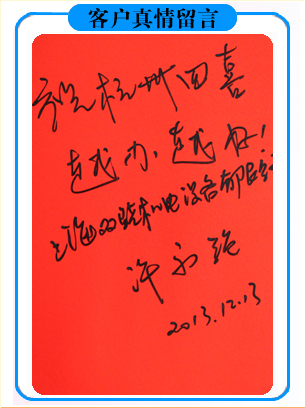 客户真情留言
祝杭州四喜
越办越好！
上海双骏机电设备有限公司
许永强
2013.12.13